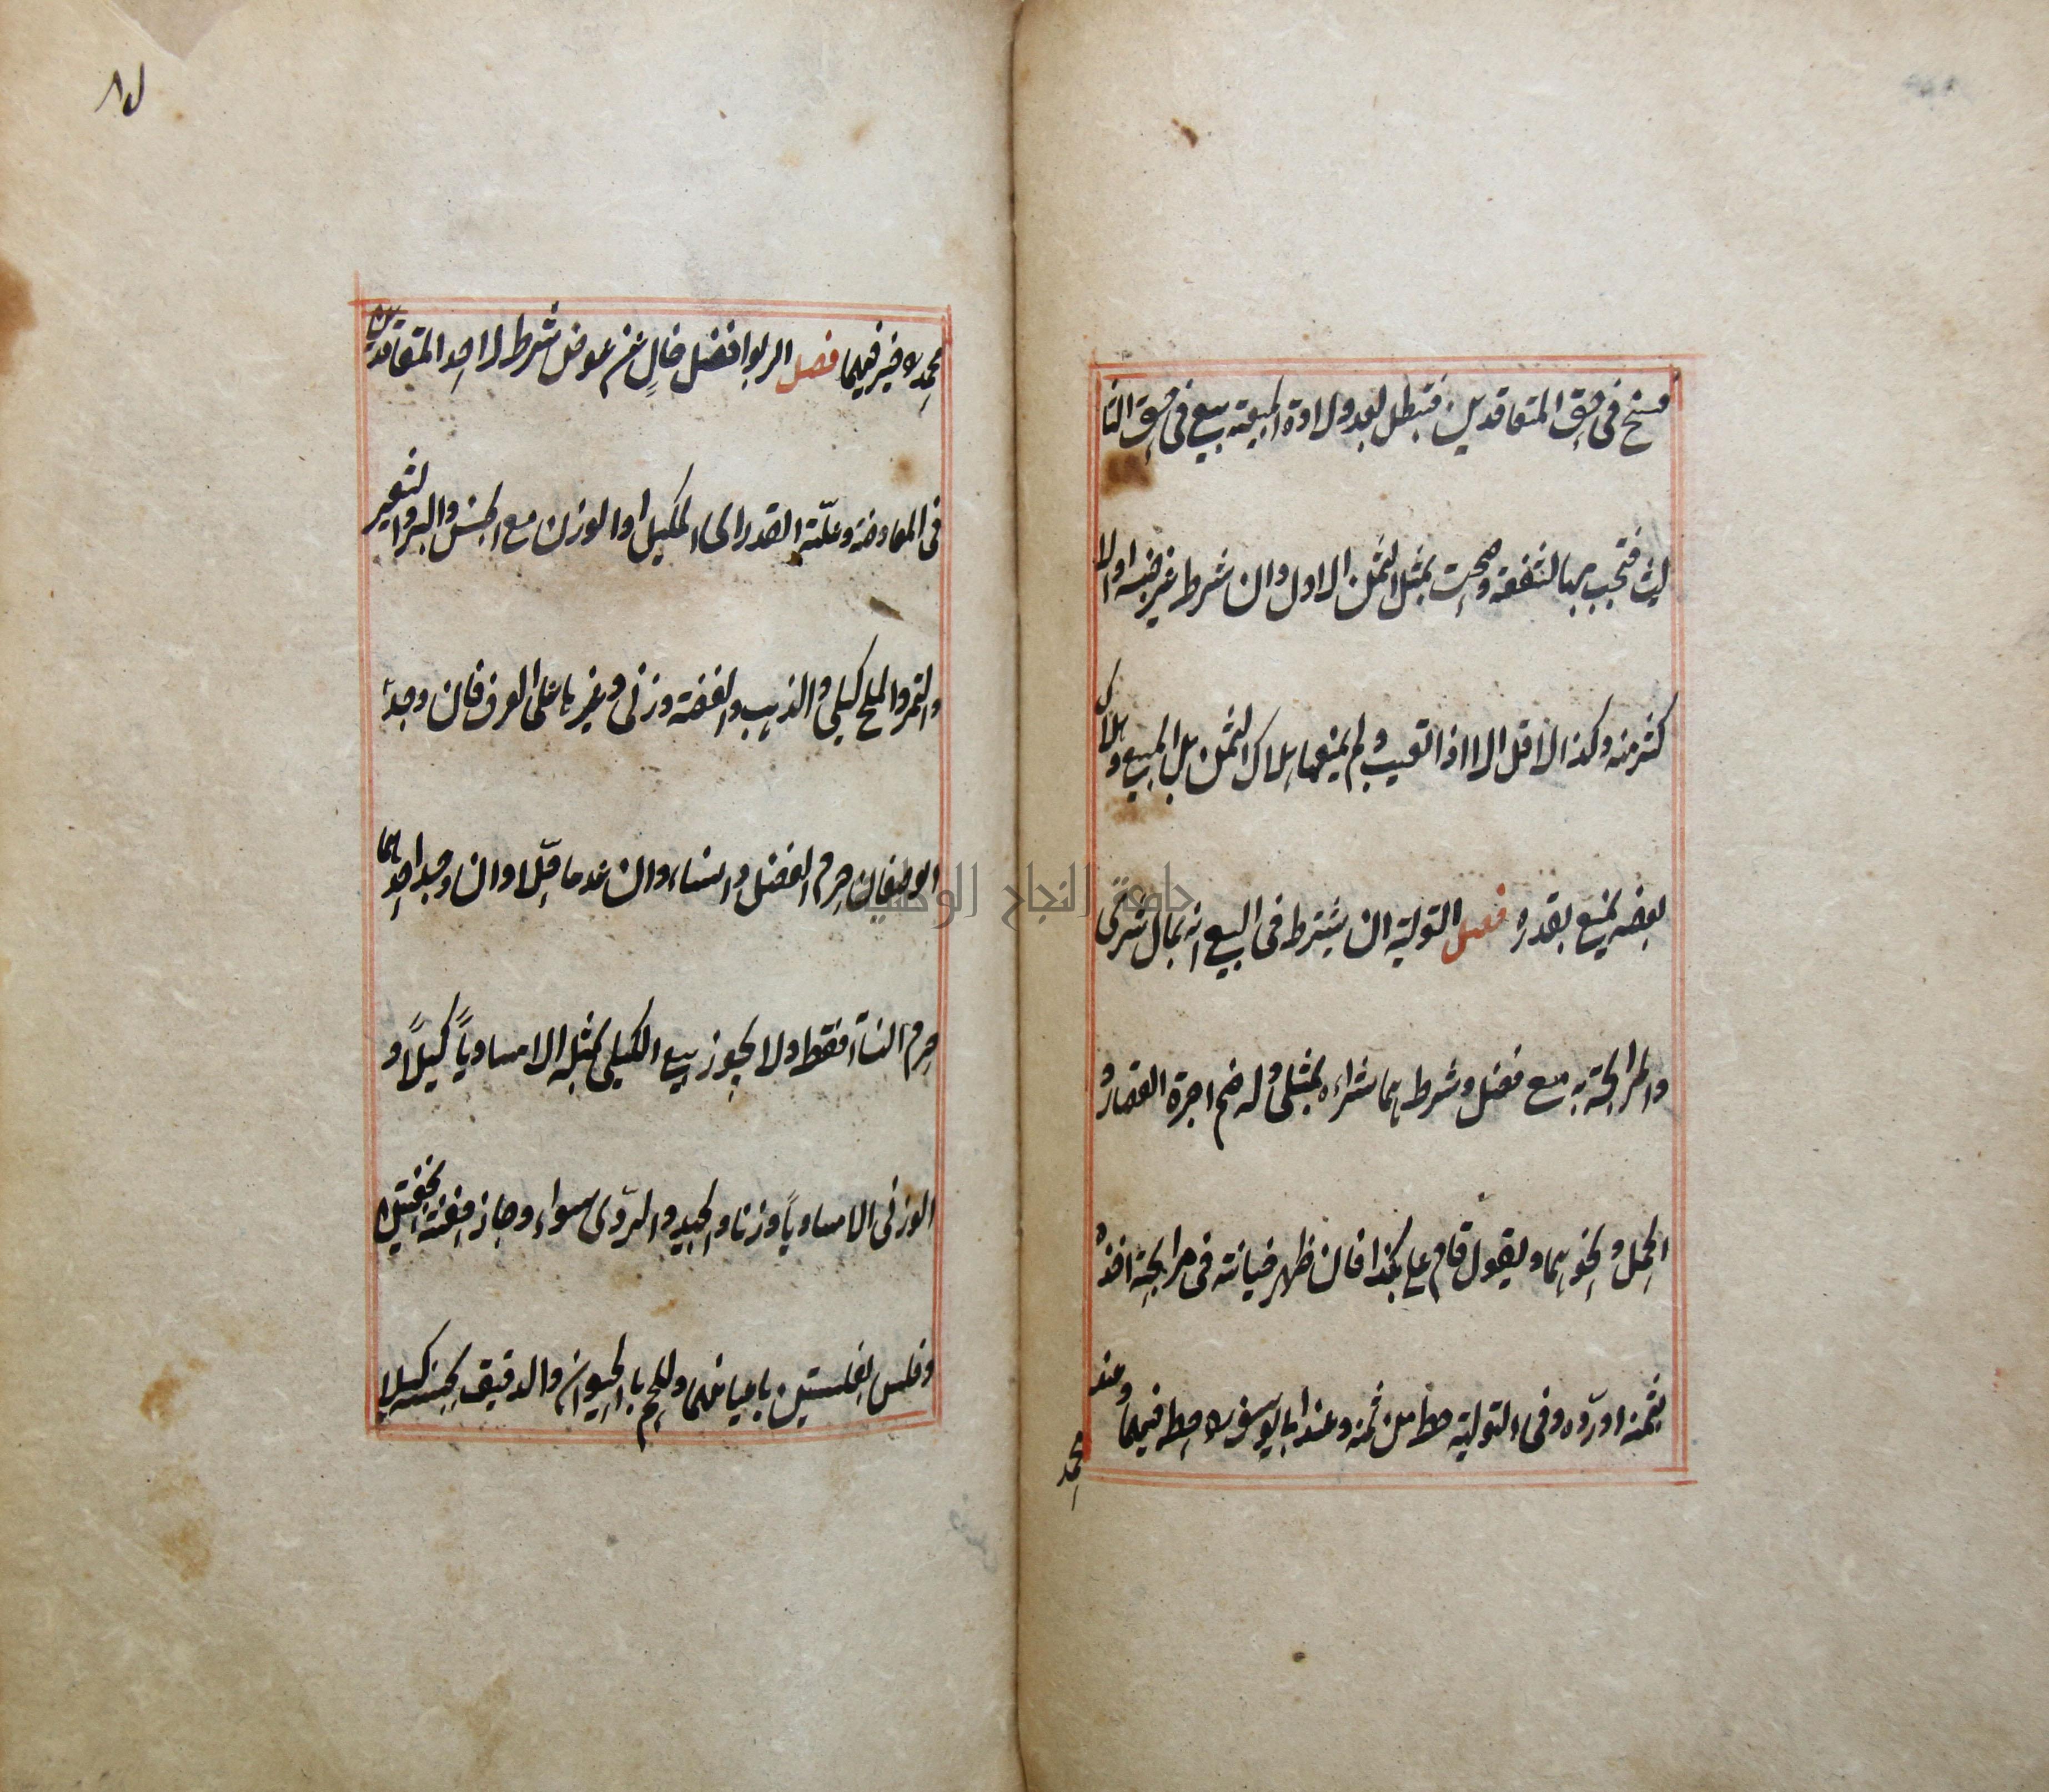 فسخ فى حق المتعاقدين فتبطل بعد ولادة المبيعة بيع فى حق الثا
لث فتجب بها الشفعة وصحت بمثل الثمن الاول وان شرط غير جنسه او الا
كثر منه وكذا الاقل الا اذا تعيب ولم يمنعها هلاك الثمن بل المبيع وهلاك
بعضه يمنع بقدره فصل التولية ان يشترط فى البيع انه بمال شرى
والمرابحة به مع فضل وشرطهما شراءه بمثلى وله ضم اجرة القصار و
الحمل ونحوهما ويقول قام على بكذا فان ظهر خيانته فى مرابحة اخذه
بثمنه او رده وفى التولية حط من ثمنه وعند ابى يوسف ره حط فيهما وعند
محمد
٨٥
محمد ره خير فيهما فصل الربوا فضل خالٍ عن عوض شرط لاحد المتعاقدين
فى المعاوضة وعلّته القدر اى الكيل او الوزن مع الجنس والبر والشعير
والتمر والملح كيلى والذهب والفضة وزنى وغيرها على العرف فان وجدا
الوصفان حرم الفضل والنساء وان عدما حلّا وان وجد احدهما
حرم النسأ فقط ولا يجوز بيع الكيلى بمثله الا مساوياً كيلاً و
الوزنى الا مساوياً وزنا والجيد والردّى سواء وجاز حفنة بحفنتين
وفلس بفلسين باعيانهما واللحم بالحيوان والدقيق بجنسه كيلا
جامعة النجاح الوطنية